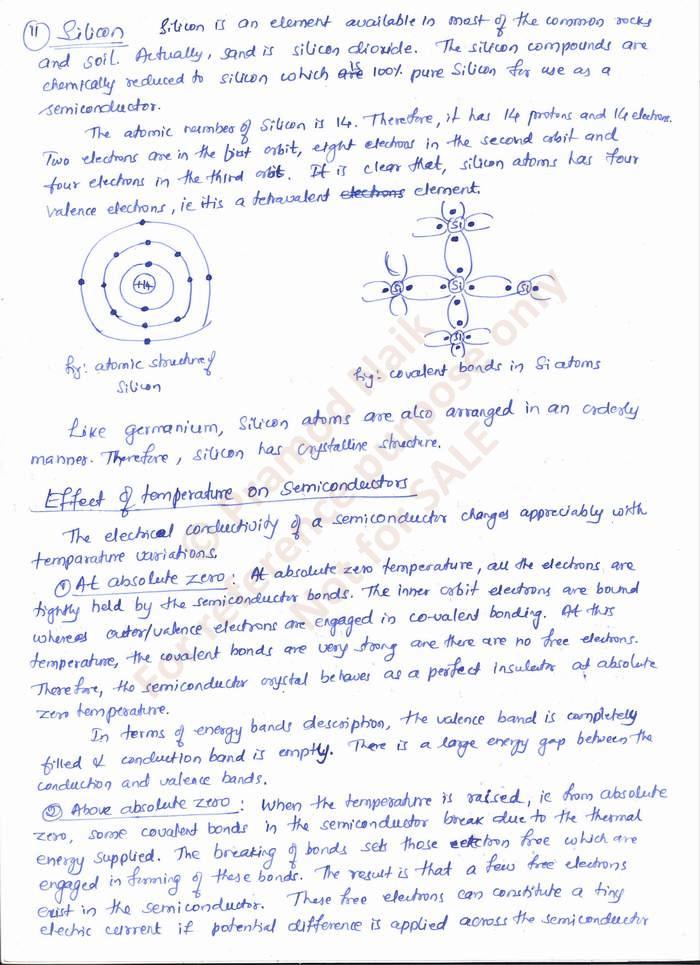 11 Silicon Silicon is an element available in most of the common rocks
and soil. Actually, sand is silicon dioxide. The silicon compounds are
chemically reduced to silicon which is 100% pure Silicon for use as a
semiconductor.
The atomic number of Silicon is 14. Therefore, it has 14 protons and 14 electrons.
Two electrons are in the first orbit, eight electrons in the second orbit and
four electrons in the third orbit. It is clear that, silicon atoms has four
valence electrons, ie it is a tetravalent electrons element.
+14
Si
Si
Si
Si
Si
fig: atomic structure of
Silicon
fig: covalent bonds in Si atoms
Like germanium, Silicon atoms are also arranged in an orderly
manner. Therefore, silicon has crystalline structure.
Effect of temperature on Semiconductors
The electrical conductivity of a semiconductor changes appreciably with
temparature variations.
1 At absolute zero: At absolute zero temperature, all the electrons are
tightly held by the semiconductor bonds. The inner orbit electrons are bound
whereas outer/valence electrons are engaged in co-valent bonding. At this
temperature, the covalent bonds are very strong are there are no free electrons.
Therefore, the semiconductor crystal behaves as a perfect insulator at absolute
zero temperature.
In terms of energy bands description, the valence band is completely
filled & conduction band is empty. There is a large energy gap between the
conduction and valence bands.
2 Above absolute zero: When the temperature is raised, ie from absolute
zero, some covalent bonds in the semiconductor break due to the thermal
energy supplied. The breaking of bonds sets those electron free which are
engaged in forming of these bonds. The result is that a few free electrons
exist in the semiconductor. These free electrons can constitute a tiny
electric current if potential difference is applied across the semiconductor
© Pramod Naik
For reference purpose only
Not for SALE